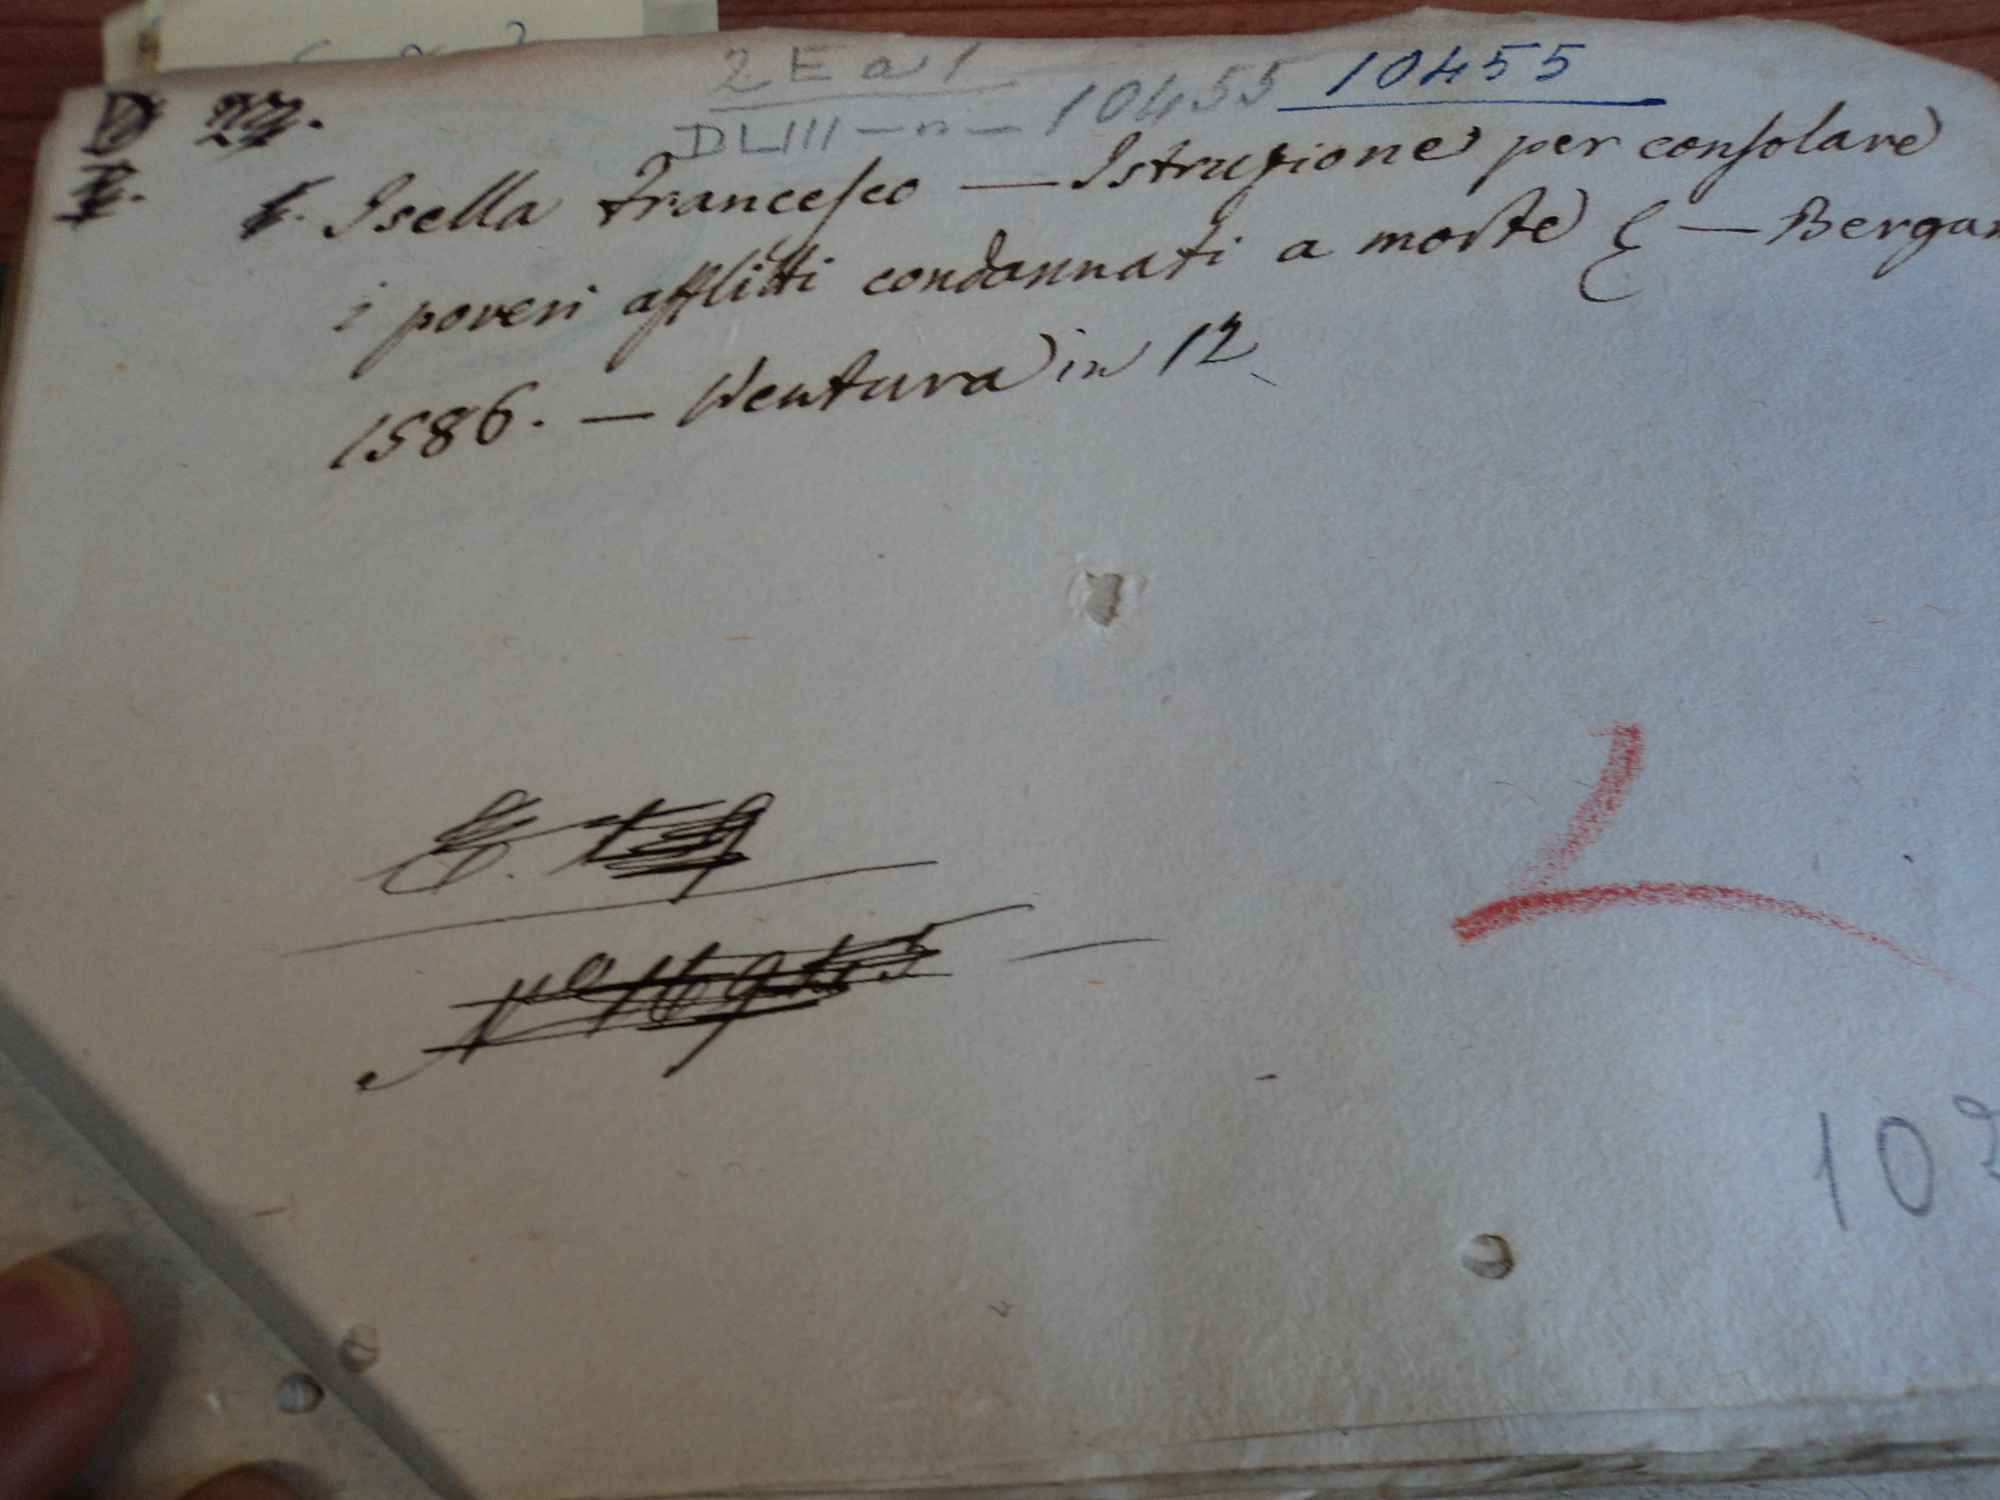 2 E a 1
DLIII — n — 10455 10455
Isella Francesco — Istruzione per consolare
i poveri afflitti condannati a morte & — Bergam
1586. — Ventura in 12
2
10